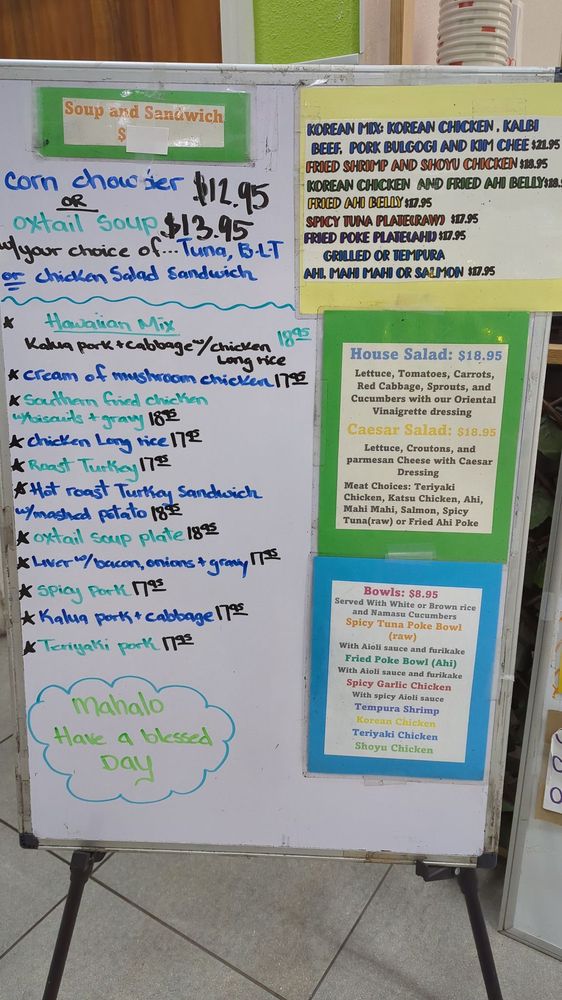 Soup and Sandwich
$
corn chowder $12.95
OR
oxtail soup $13.95
w/your choice of... Tuna, B-L-T
or chicken Salad Sandwich
★ Hawaiian Mix
Kalua pork + cabbage w/chicken 18.95
Long rice
★ cream of mushroom chicken 17.95
★ Southern fried chicken
w/biscuits + gravy 18.95
★ chicken Long rice 17.95
★ Roast Turkey 17.95
★ Hot roast Turkey Sandwich
w/mashed potato 18.95
★ oxtail soup plate 18.95
★ Liver w/bacon, onions + gravy 17.95
★ Spicy Pork 17.95
★ Kalua pork + cabbage 17.95
★ Teriyaki pork 17.95
Mahalo
Have a blessed
DAY
KOREAN MIX: KOREAN CHICKEN, KALBI
BEEF, PORK BULGOGI AND KIM CHEE $21.95
FRIED SHRIMP AND SHOYU CHICKEN $18.95
KOREAN CHICKEN AND FRIED AHI BELLY $18.
FRIED AHI BELLY $17.95
SPICY TUNA PLATE(RAW) $17.95
FRIED POKE PLATE(AHI) $17.95
GRILLED OR TEMPURA
AHI, MAHI MAHI OR SALMON $17.95
House Salad: $18.95
Lettuce, Tomatoes, Carrots,
Red Cabbage, Sprouts, and
Cucumbers with our Oriental
Vinaigrette dressing
Caesar Salad: $18.95
Lettuce, Croutons, and
parmesan Cheese with Caesar
Dressing
Meat Choices: Teriyaki
Chicken, Katsu Chicken, Ahi,
Mahi Mahi, Salmon, Spicy
Tuna(raw) or Fried Ahi Poke
Bowls: $8.95
Served With White or Brown rice
and Namasu Cucumbers
Spicy Tuna Poke Bowl
(raw)
With Aioli sauce and furikake
Fried Poke Bowl (Ahi)
With Aioli sauce and furikake
Spicy Garlic Chicken
With spicy Aioli sauce
Tempura Shrimp
Korean Chicken
Teriyaki Chicken
Shoyu Chicken